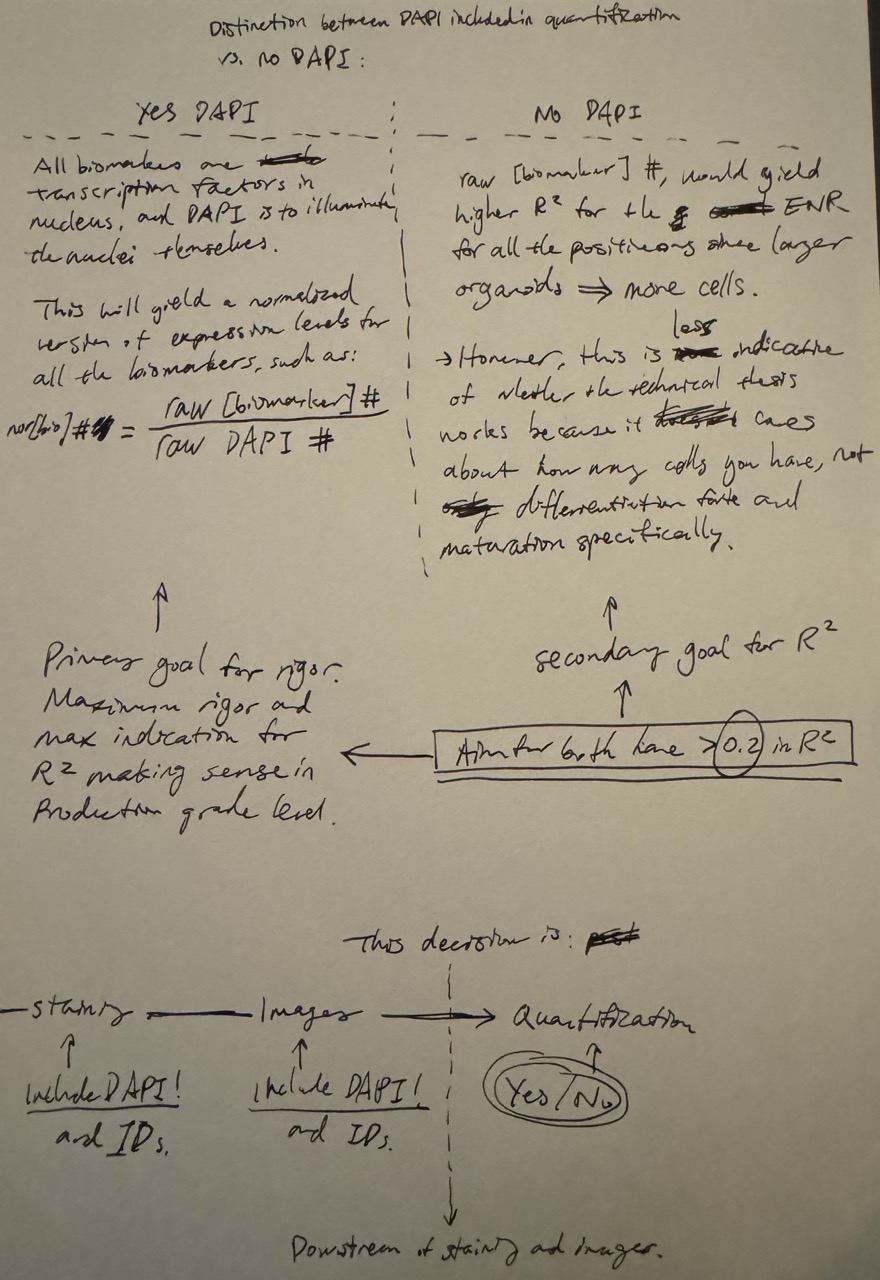 Distinction between DAPI included in quantification
vs. no DAPI:
Yes DAPI
All biomarkers are
transcription factors in
nucleus, and DAPI is to illuminate
the nuclei themselves.
This will yield a normalized
version of expression levels for
all the biomarkers, such as:
nor[bio]# = raw [biomarker] # / raw DAPI #
No DAPI
raw [biomarker] #, would yield
higher R² for the ENR
for all the positive since larger
organoids ⇒ more cells.
→ However, this is less indicative
of whether the technical thesis
works because it cares
about how many cells you have, not
differentiation fate and
maturation specifically.
↑
Primary goal for rigor.
Maximum rigor and
max indication for
R² making sense in
Production grade level.
↑
secondary goal for R²
↑
← Aim for both have >0.2 in R²
This decision is:
staining — Images → Quantification
↑ ↑ ↑
Include DAPI! Include DAPI! Yes/No
and IDs. and IDs.
Downstream of staining and images.